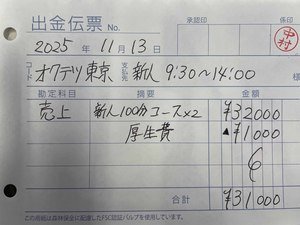 出金伝票 No.
承認印 係印
2025年11月13日
中村
コード オクテツ東京 支払先 新人 9:30~14:00 様
勘定科目 摘要 金額
売上 新人100分コース×2 ¥32000
厚生費 ▲¥1000
合計 ¥31000
この用紙は森林保全に配慮したFSC認証パルプを使用しています。